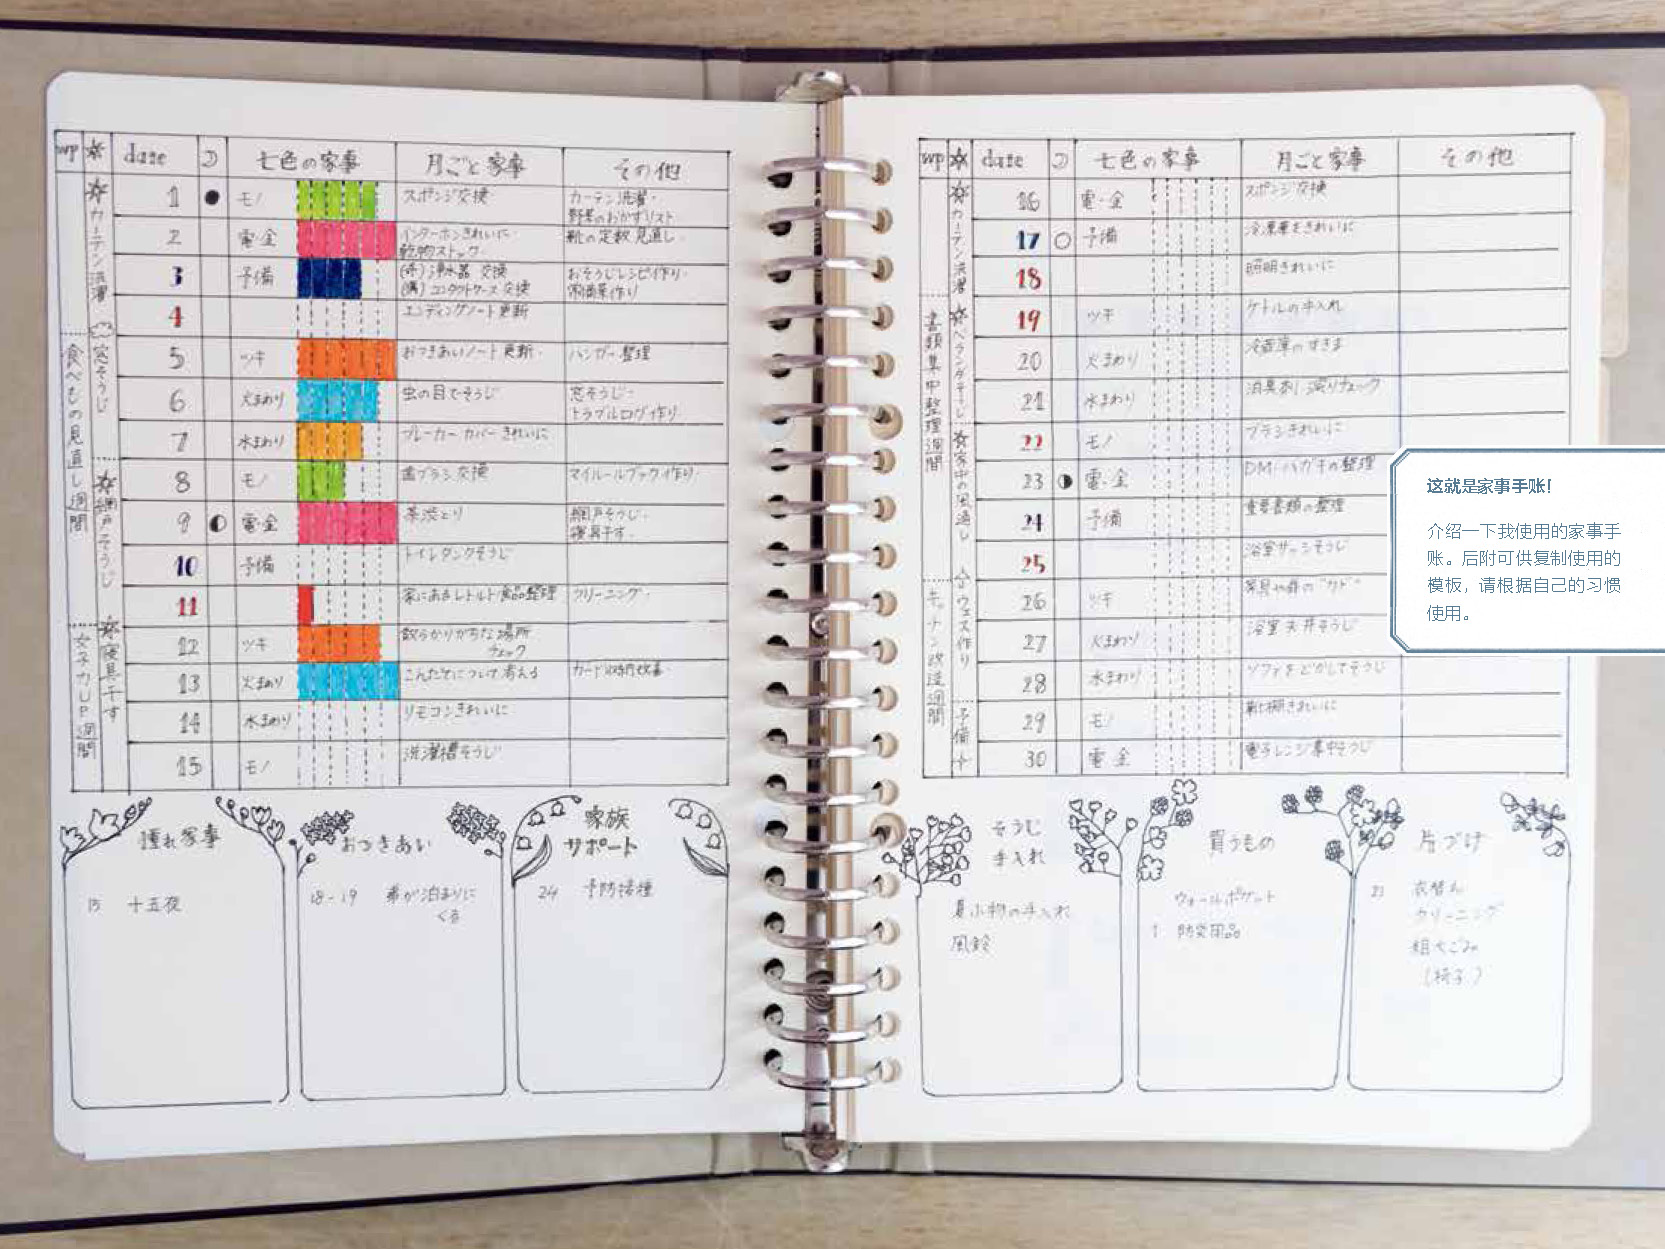 wp date 七色の家事 月ごと家事 その他
カーテン洗濯
窓そうじ
網戸そうじ
寝具干す
食べもの見直し週間
女子力UP週間
1 モノ スポンジ交換 カーテン洗濯・
野菜のおかずリスト
2 電・金 インターホンきれいに・ 靴の定数見直し・
乾物ストック・
3 予備 浄水器 交換 おそうじレシピ作り・
コンタクトケース 交換 常備菜作り
4 エンディングノート更新
5 ツキ おつきあいノート更新・ ハンガー整理
6 火まわり 虫の目でそうじ 窓そうじ・
トラブルログ作り
7 水まわり ブレーカーカバーきれいに
8 モノ 歯ブラシ交換 マイルールブック作り・
9 電・金 茶渋とり 網戸そうじ・
寝具干す・
10 予備 トイレタンクそうじ
11 家にあるレトルト食品整理 クリーニング・
12 ツキ 散らかりがちな場所
チェック
13 火まわり こんだてについて考える カード収納改善・
14 水まわり リモコンきれいに
15 モノ 洗濯槽そうじ
憧れ家事
15 十五夜
おつきあい
18-19 弟が泊まりに
くる
家族
サポート
24 予防接種
wp date 七色の家事 月ごと家事 その他
カーテン洗濯
ベランダそうじ
家中の風通し
ウエス作り
予備
書類集中整理週間
キッチン改造週間
16 電・金 スポンジ交換
17 予備 冷凍庫をきれいに
18 照明きれいに
19 ツキ ケトルの手入れ
20 火まわり 冷蔵庫のすきま
21 水まわり 消臭剤 減りチェック
22 モノ ブラシきれいに
23 電・金 DM・ハガキの整理
24 予備 重要書類の整理
25 浴室サッシそうじ
26 ツキ 家具や扉の"カド"
27 火まわり 浴室天井そうじ
28 水まわり ソファをどかしてそうじ
29 モノ 靴棚きれいに
30 電・金 電子レンジ集中そうじ
そうじ
手入れ
夏小物の手入れ
風鈴
買うもの
ウォールポケット
1 防災用品
片づけ
23 衣替え
クリーニング
粗大ごみ
(椅子)
这就是家事手账!
介绍一下我使用的家事手
账。后附可供复制使用的
模板，请根据自己的习惯
使用。